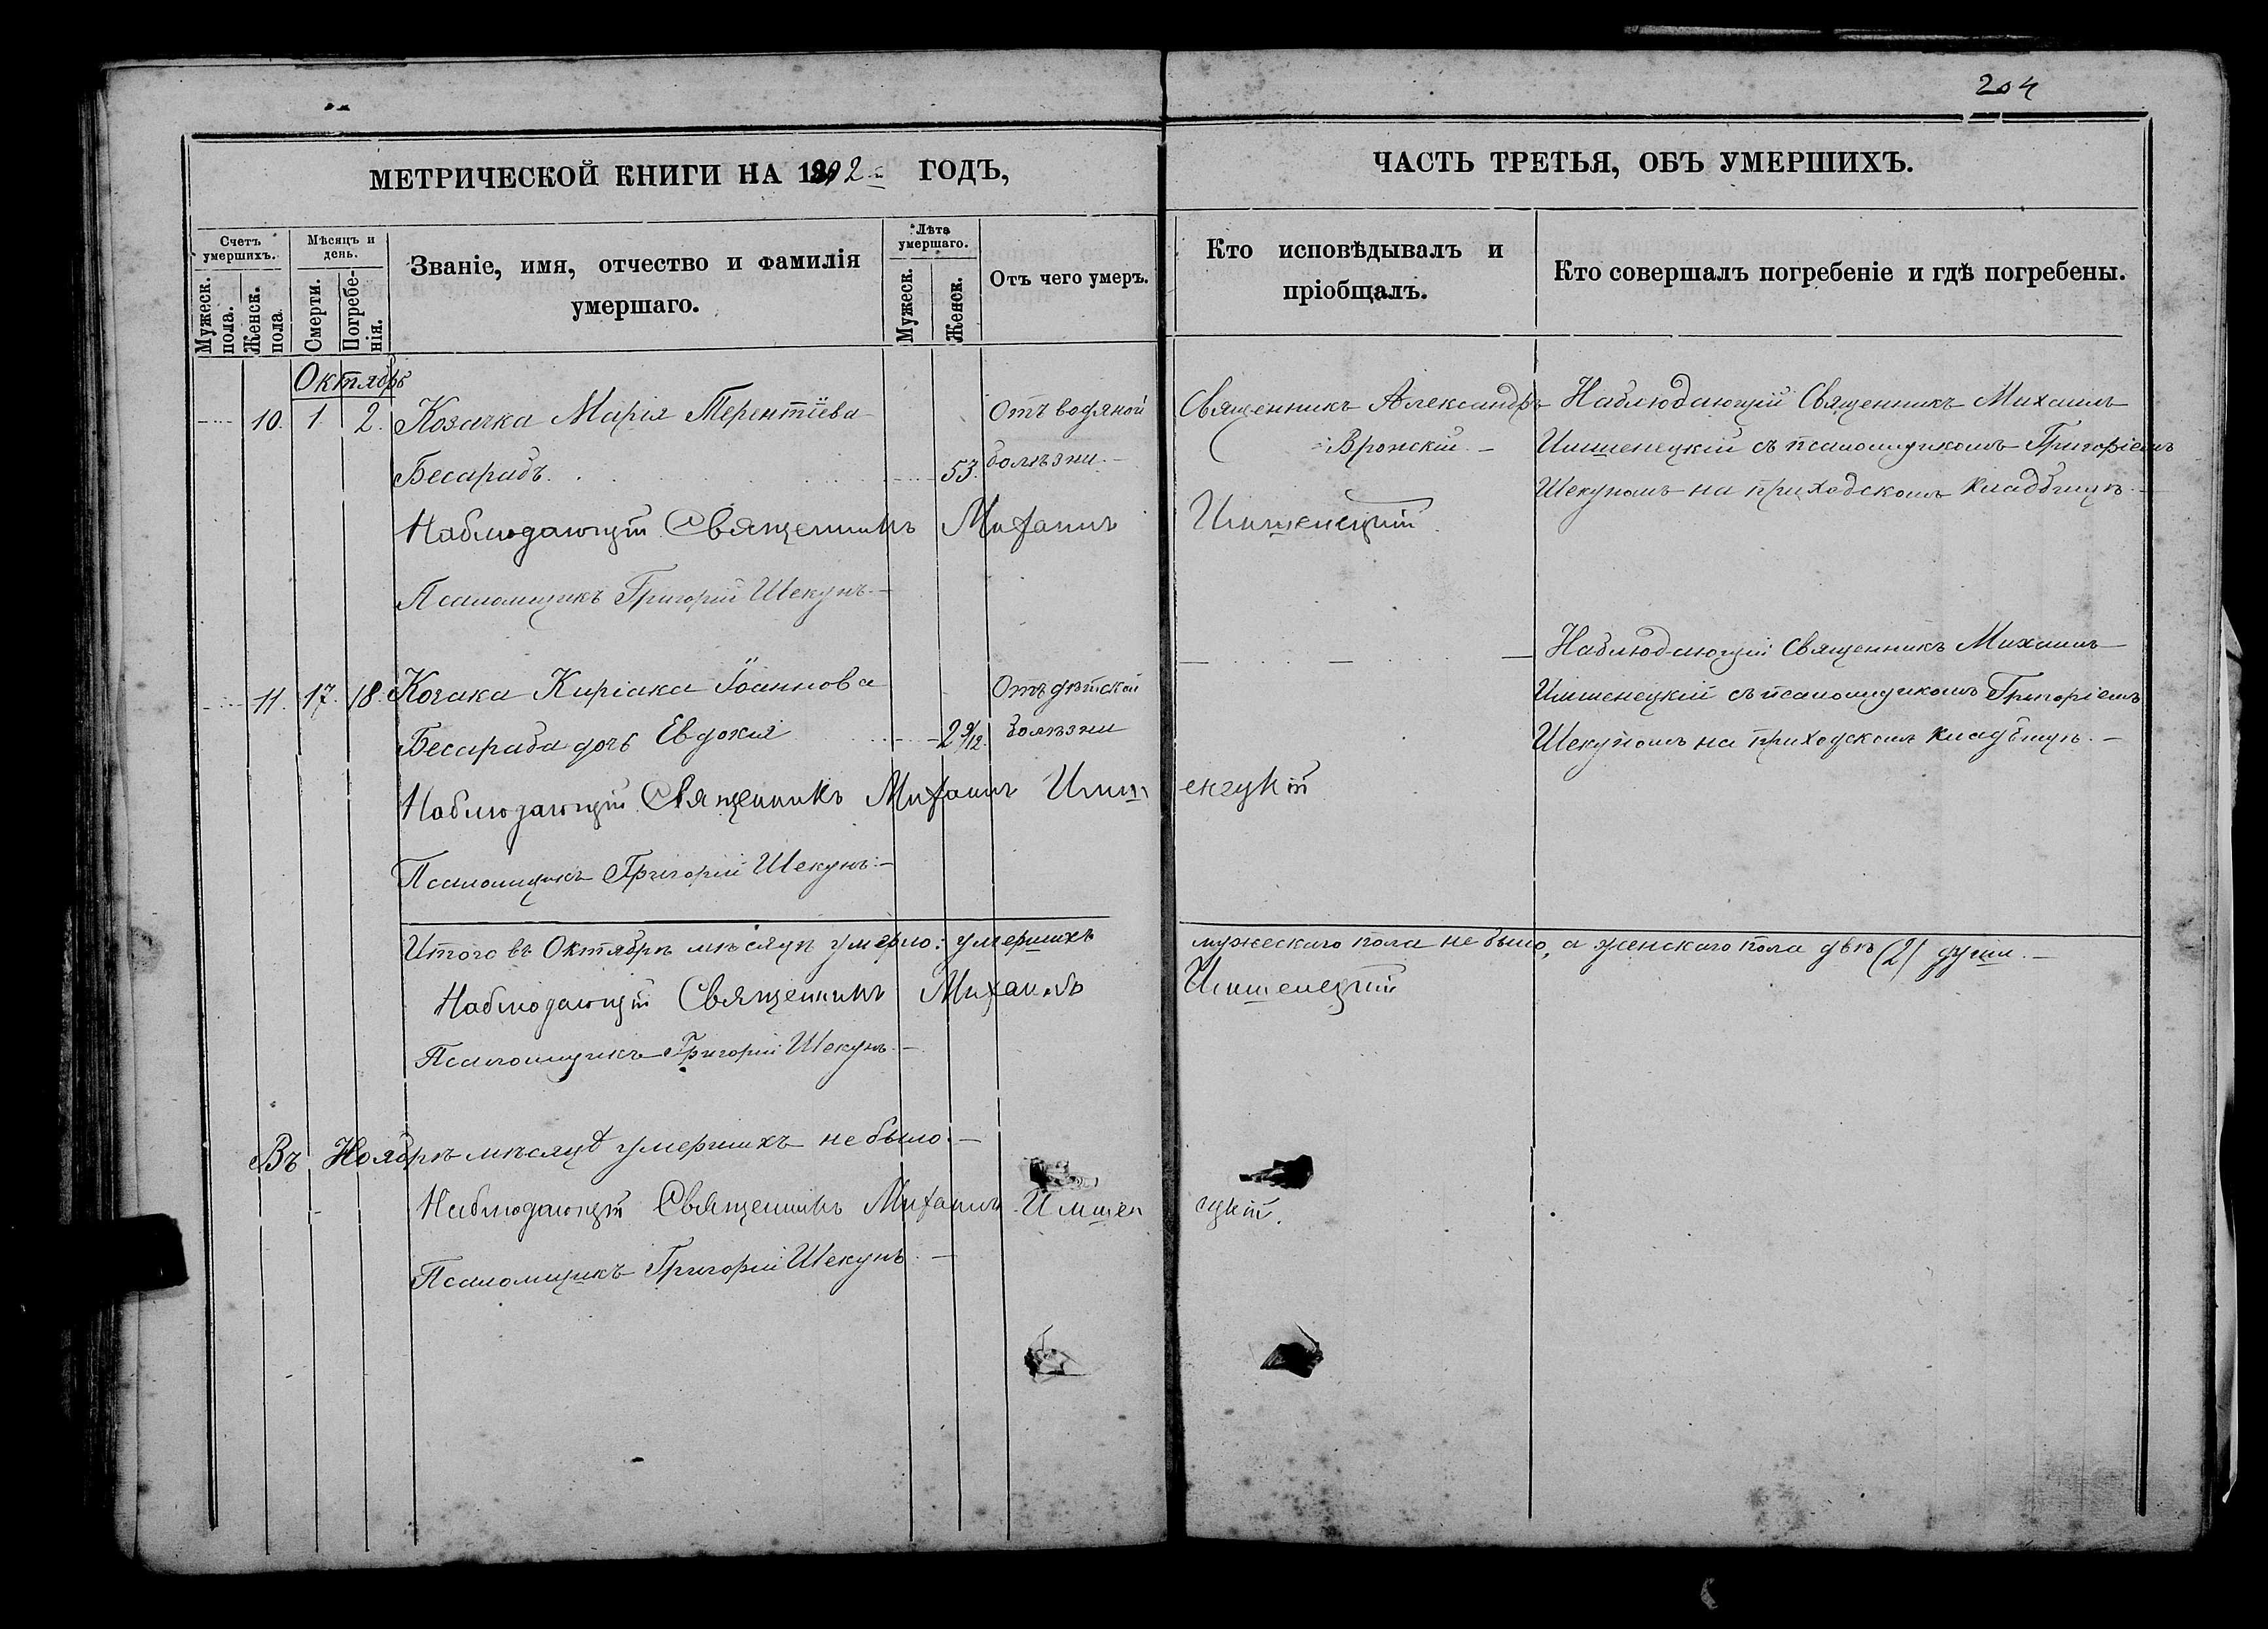 204
МЕТРИЧЕСКОЙ КНИГИ НА 1892 ГОДЪ,
ЧАСТЬ ТРЕТЬЯ, ОБЪ УМЕРШИХЪ.
Счетъ умершихъ.
Мужеск. пола.
Женск. пола.
Мѣсяцъ и день.
Смерти.
Погребенія.
Званіе, имя, отчество и фамилія
умершаго.
Лѣта умершаго.
Мужеск.
Женск.
Отъ чего умеръ.
Кто исповѣдывалъ и
пріобщалъ.
Кто совершалъ погребеніе и гдѣ погребены.
Октябрь
10. 1 2. Козачка Марія Терентіева Отъ водяной Священникъ Александръ Наблюдающій Священникъ Михаилъ
Бесарабъ. 53. болѣзни. Вронскій. Имшенецкій съ псаломщикомъ Григоріемъ
Шекуномъ на приходскомъ кладбищѣ.
Наблюдающій Священникъ Михаилъ Имшенецкій.
Псаломщикъ Григорій Шекунъ.
Наблюдающій Священникъ Михаилъ
11. 17. 18. Козака Киріака Іоаннова Отъ дѣтской Имшенецкій съ псаломщикомъ Григоріемъ
Бесараба дочь Евдокія 2 9/12. болѣзни Шекуномъ на приходскомъ кладбищѣ.
Наблюдающій Священникъ Михаилъ Имшенецкій
Псаломщикъ Григорій Шекунъ.
Итого въ Октябрѣ мѣсяцѣ умерло: умершихъ мужескаго пола не было, а женскаго пола двѣ (2) души.
Наблюдающій Священникъ Михаилъ Имшенецкій
Псаломщикъ Григорій Шекунъ.
Въ Ноябрѣ мѣсяцѣ умершихъ не было.
Наблюдающій Священникъ Михаилъ Имшенецкій.
Псаломщикъ Григорій Шекунъ.